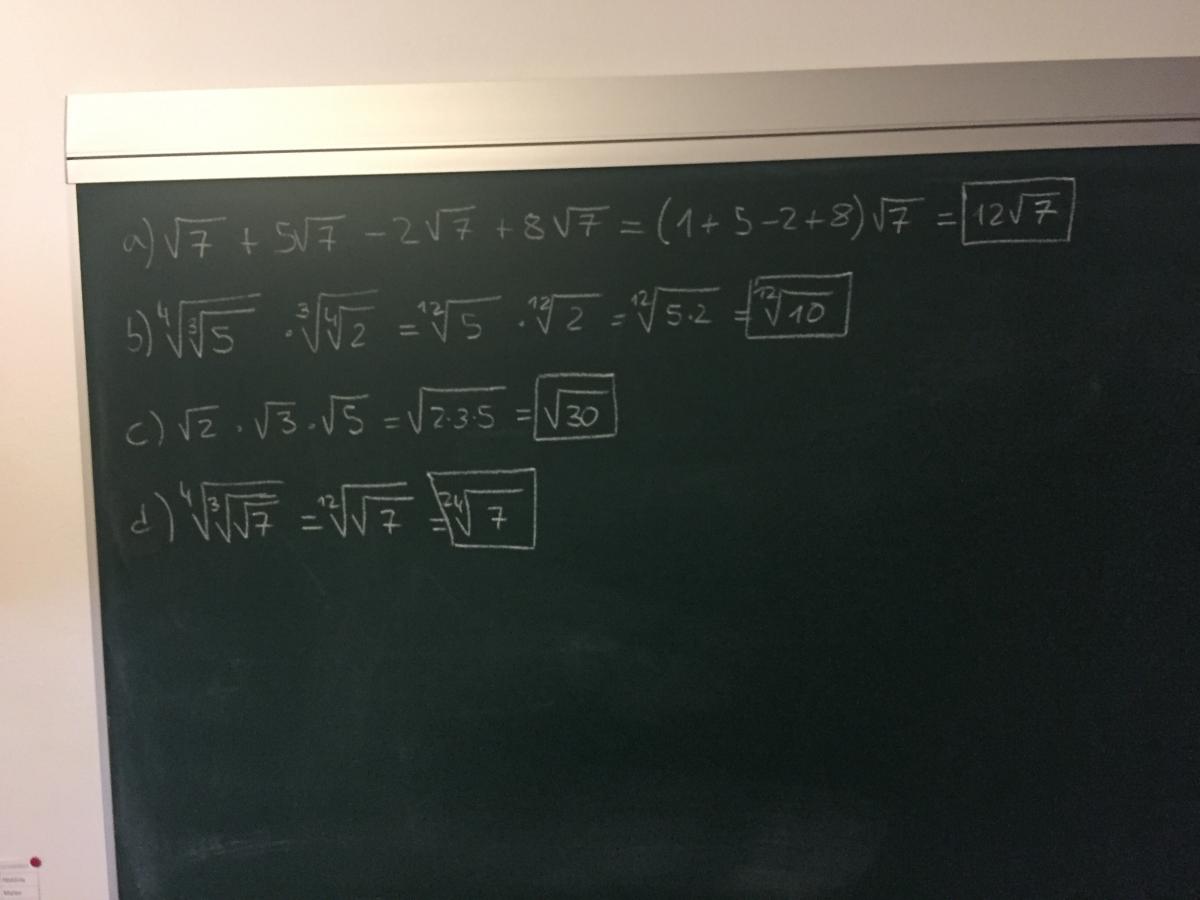 a) √7 + 5√7 - 2√7 + 8√7 = (1 + 5 - 2 + 8)√7 = 12√7
b) ⁴√(³√5) · ³√(⁴√2) = ¹²√5 · ¹²√2 = ¹²√(5·2) = ¹²√10
c) √2 · √3 · √5 = √(2·3·5) = √30
d) ⁴√(³√(√7)) = ¹²√(√7) = ²⁴√7